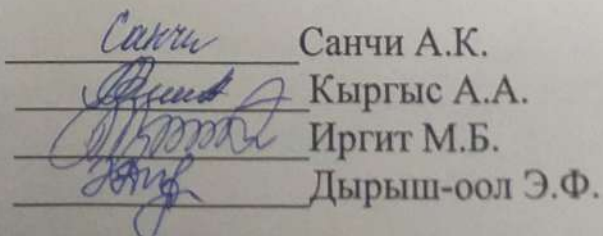 Санчи Санчи А.К.
Кыргыс А.А.
Иргит М.Б.
Дырыш-оол Э.Ф.